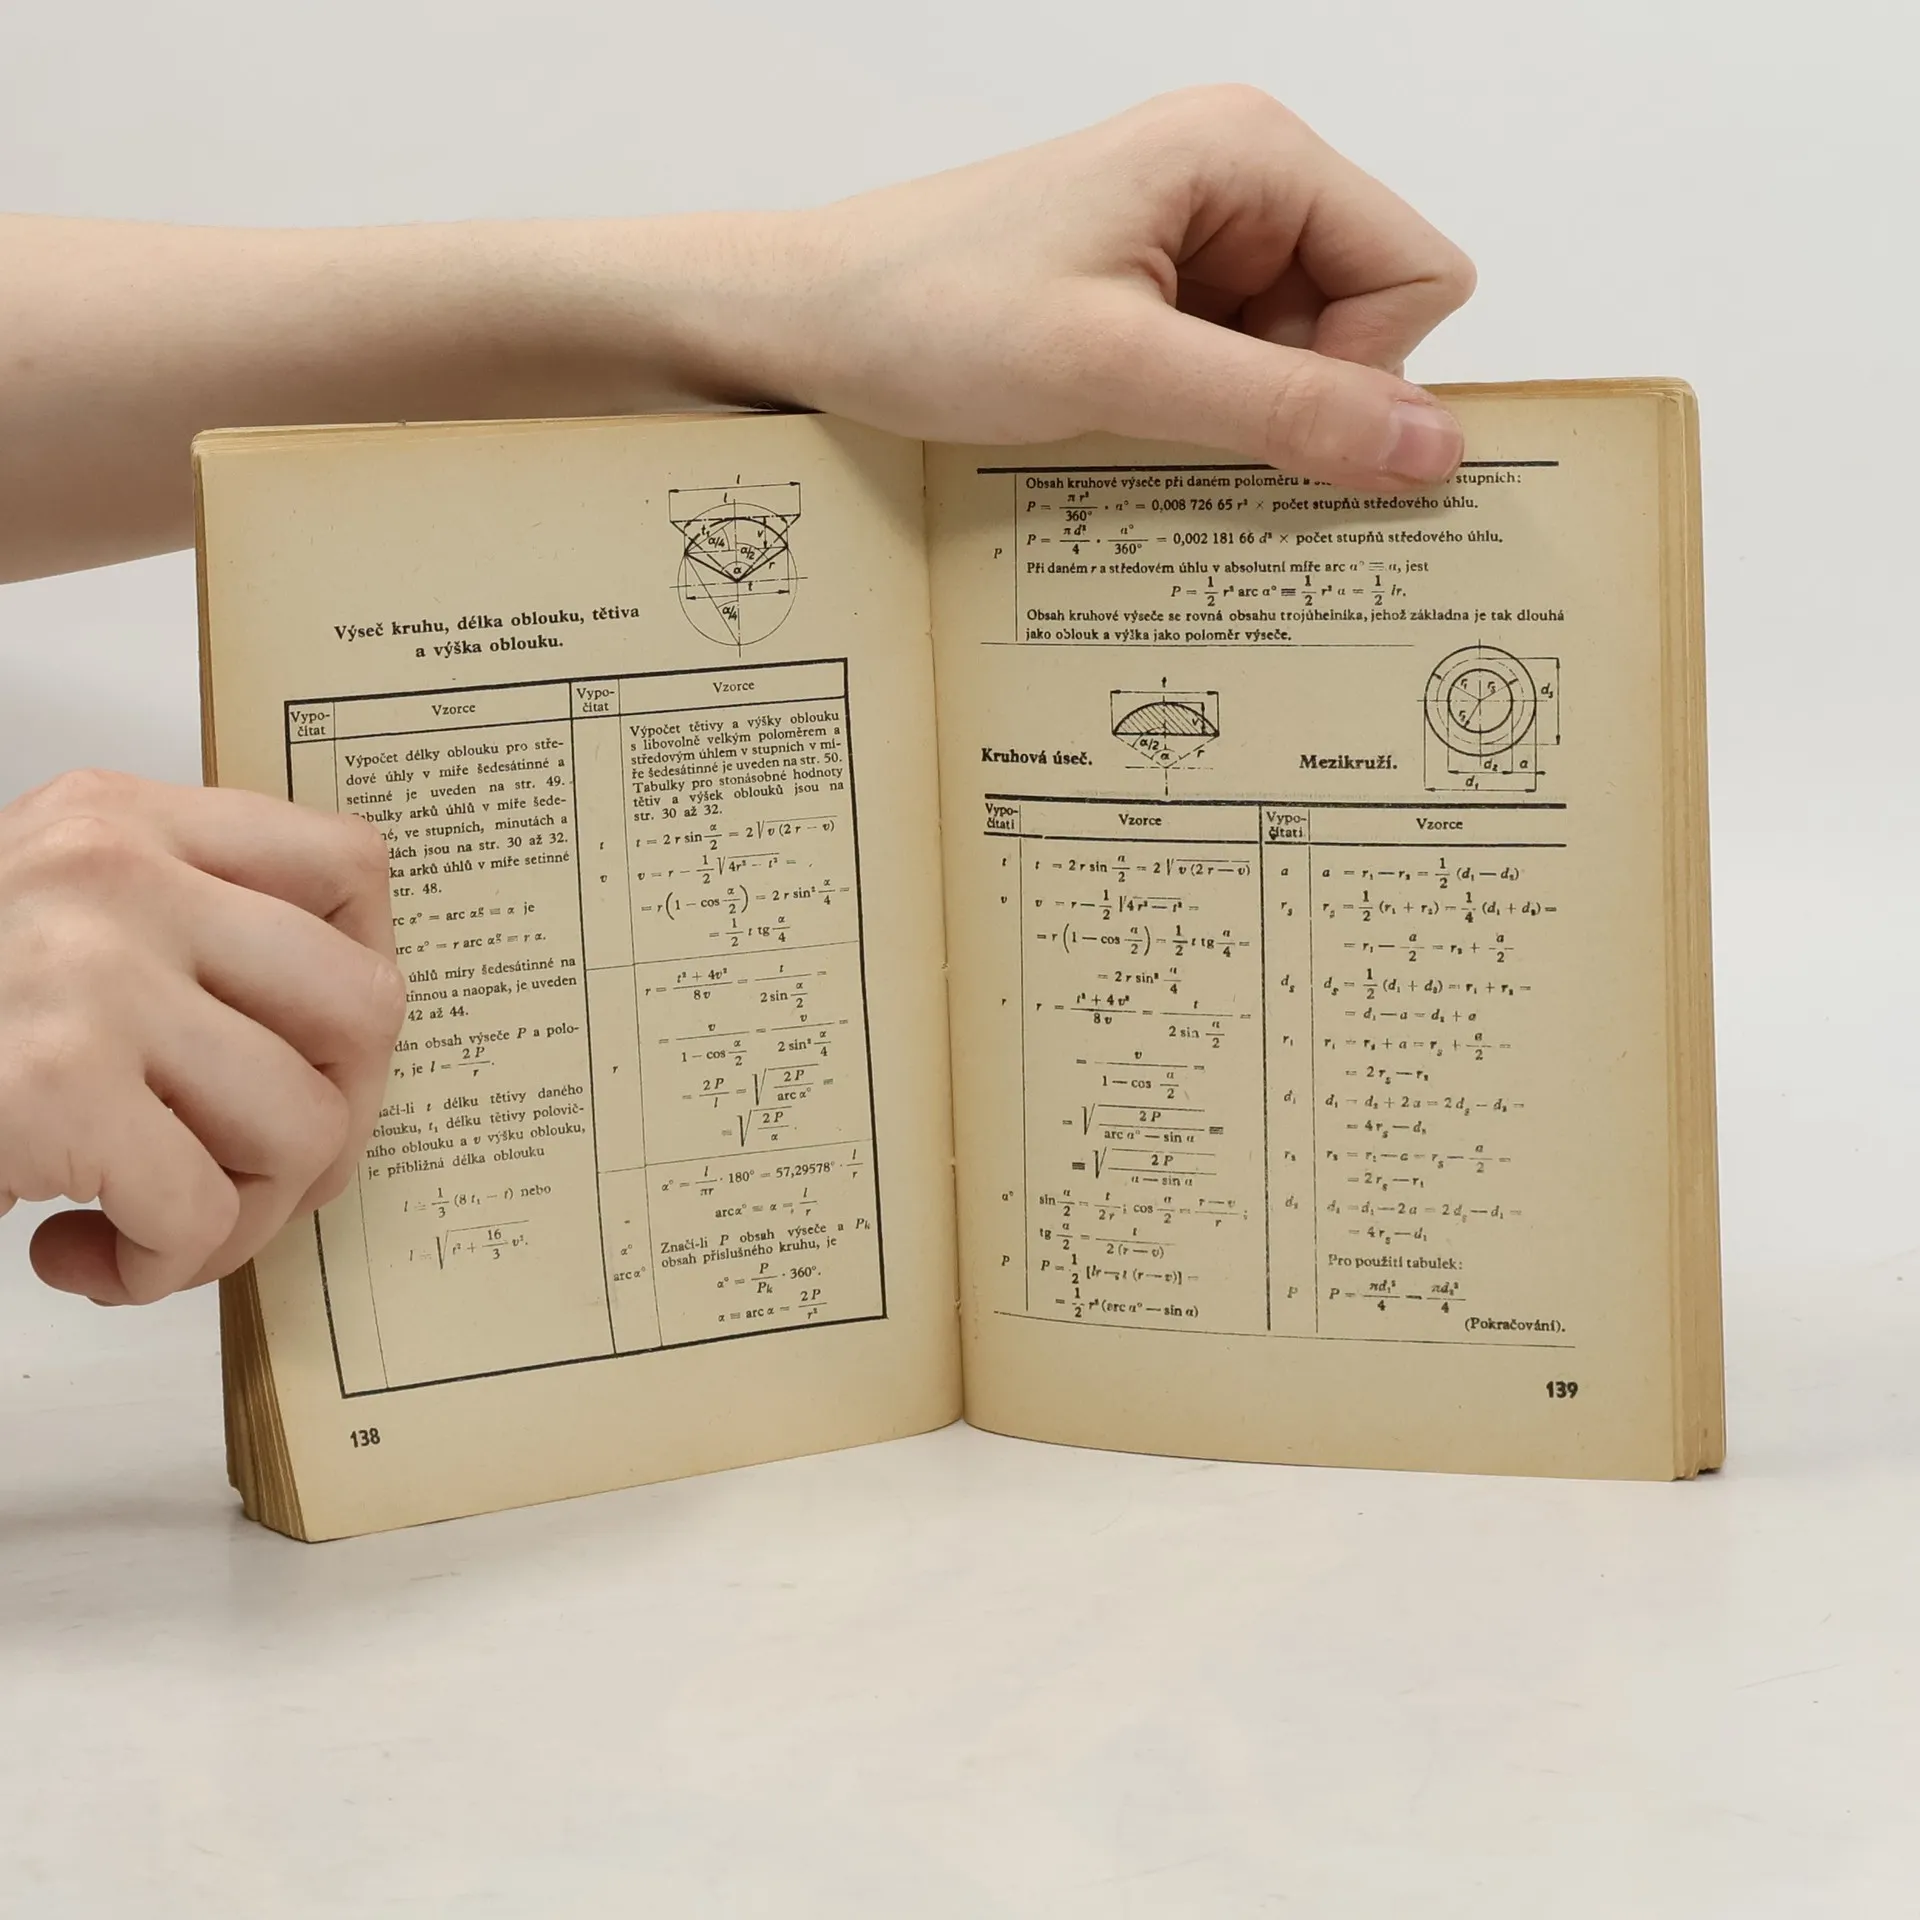 Výseč kruhu, délka oblouku, tětiva
a výška oblouku.
l
l
t₁ α/4 v
α/2
α r
t
α/4
Vypo-
čítat
Vzorce
Výpočet délky oblouku pro stře-
dové úhly v míře šedesátinné a
setinné je uveden na str. 49.
arků úhlů v míře šede-
ve stupních, minutách a
jsou na str. 30 až 32.
arků úhlů v míře setinné
str. 48.
α° = arc αg ≡ α je
α° = r arc αg ≡ r α.
úhlů míry šedesátinné na
a naopak, je uveden
42 až 44.
obsah výseče P a polo-
r, je l = 2P/r.
t délku tětivy daného
t₁ délku tětivy polovič-
ního oblouku a v výšku oblouku,
je přibližná délka oblouku
l ≐ 1/3 (8 t₁ − t) nebo
l ≐ √(t² + 16/3 v²).
Vypo-
čítat
Vzorce
Výpočet tětivy a výšky oblouku
s libovolně velkým poloměrem a
středovým úhlem v stupních v mí-
ře šedesátinné je uveden na str. 50.
Tabulky pro stonásobné hodnoty
tětiv a výšek oblouků jsou na
str. 30 až 32.
t t = 2 r sin α/2 = 2 √(v (2 r − v))
v v = r − 1/2 √(4r² − t²) =
= r (1 − cos α/2) = 2 r sin² α/4 =
= 1/2 t tg α/4
r = (t² + 4v²)/(8 v) = t/(2 sin α/2) =
= v/(1 − cos α/2) = v/(2 sin² α/4) =
r = 2P/l = √(2P/arc α°) =
= √(2P/α).
α° = l/πr · 180° = 57,29578° · l/r
arc α° = α = l/r
Značí-li P obsah výseče a Pk
α° obsah příslušného kruhu, je
arc α° α° = P/Pk · 360°.
α ≡ arc α = 2P/r²
138
Obsah kruhové výseče při daném poloměru a stupních:
P = π r²/360° · α° = 0,008 726 65 r² × počet stupňů středového úhlu.
P P = π d²/4 · α°/360° = 0,002 181 66 d² × počet stupňů středového úhlu.
Při daném r a středovém úhlu v absolutní míře arc α° ≡ α, jest
P = 1/2 r² arc α° ≡ 1/2 r² α = 1/2 lr.
Obsah kruhové výseče se rovná obsahu trojúhelníka, jehož základna je tak dlouhá
jako oblouk a výška jako poloměr výseče.
Kruhová úseč.
t
v
α/2 α r
Mezikruží.
r₁ r₂ rs d₃
d₂ a
d₁
Vypo-
čítati
Vzorce
t t = 2 r sin α/2 = 2 √(v (2 r − v))
v v = r − 1/2 √(4 r² − t²) =
= r (1 − cos α/2) = 1/2 t tg α/4 =
= 2 r sin² α/4
r r = (t² + 4 v²)/(8 v) = t/(2 sin α/2) =
= v/(1 − cos α/2) =
= √(2 P/(arc α° − sin α)) ≡
≡ √(2 P/(α − sin α))
α° sin α/2 = t/2r ; cos α/2 = (r − v)/r ;
tg α/2 = t/(2 (r − v))
P P = 1/2 [lr − t (r − v)] =
= 1/2 r² (arc α° − sin α)
Vypo-
čítati
Vzorce
a a = r₁ − r₂ = 1/2 (d₁ − d₂)
rs rs = 1/2 (r₁ + r₂) = 1/4 (d₁ + d₂) =
= r₁ − a/2 = r₂ + a/2
ds ds = 1/2 (d₁ + d₂) = r₁ + r₂ =
= d₁ − a = d₂ + a
r₁ r₁ = r₂ + a = rs + a/2 =
= 2 rs − r₂
d₁ d₁ = d₂ + 2 a = 2 ds − d₂ =
= 4 rs − d₂
r₂ r₂ = r₁ − a = rs − a/2 =
= 2 rs − r₁
d₂ d₂ = d₁ − 2 a = 2 ds − d₁ =
= 4 rs − d₁
Pro použití tabulek:
P P = πd₁²/4 − πd₂²/4
(Pokračování).
139